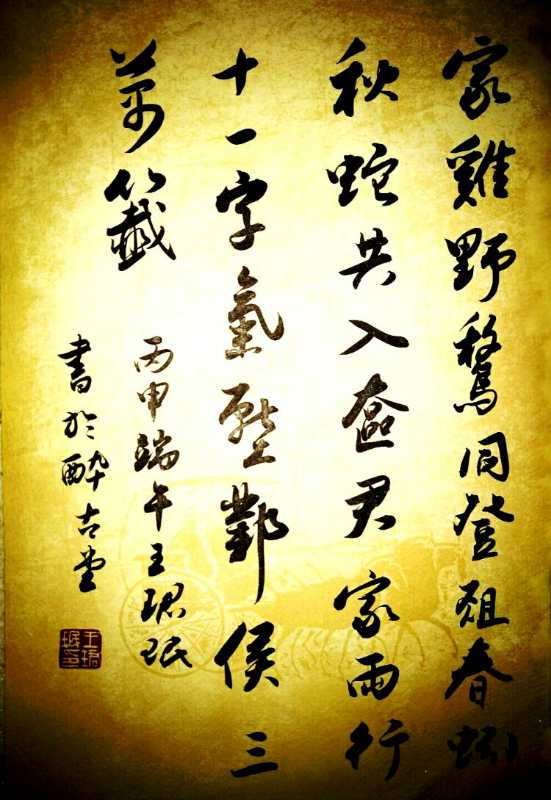 家雞野鶩同登俎春蚓
秋蛇共入奩君家兩行
十一字氣壓鄴侯三
萬籤
丙申端午王珺珉
書於醉古堂